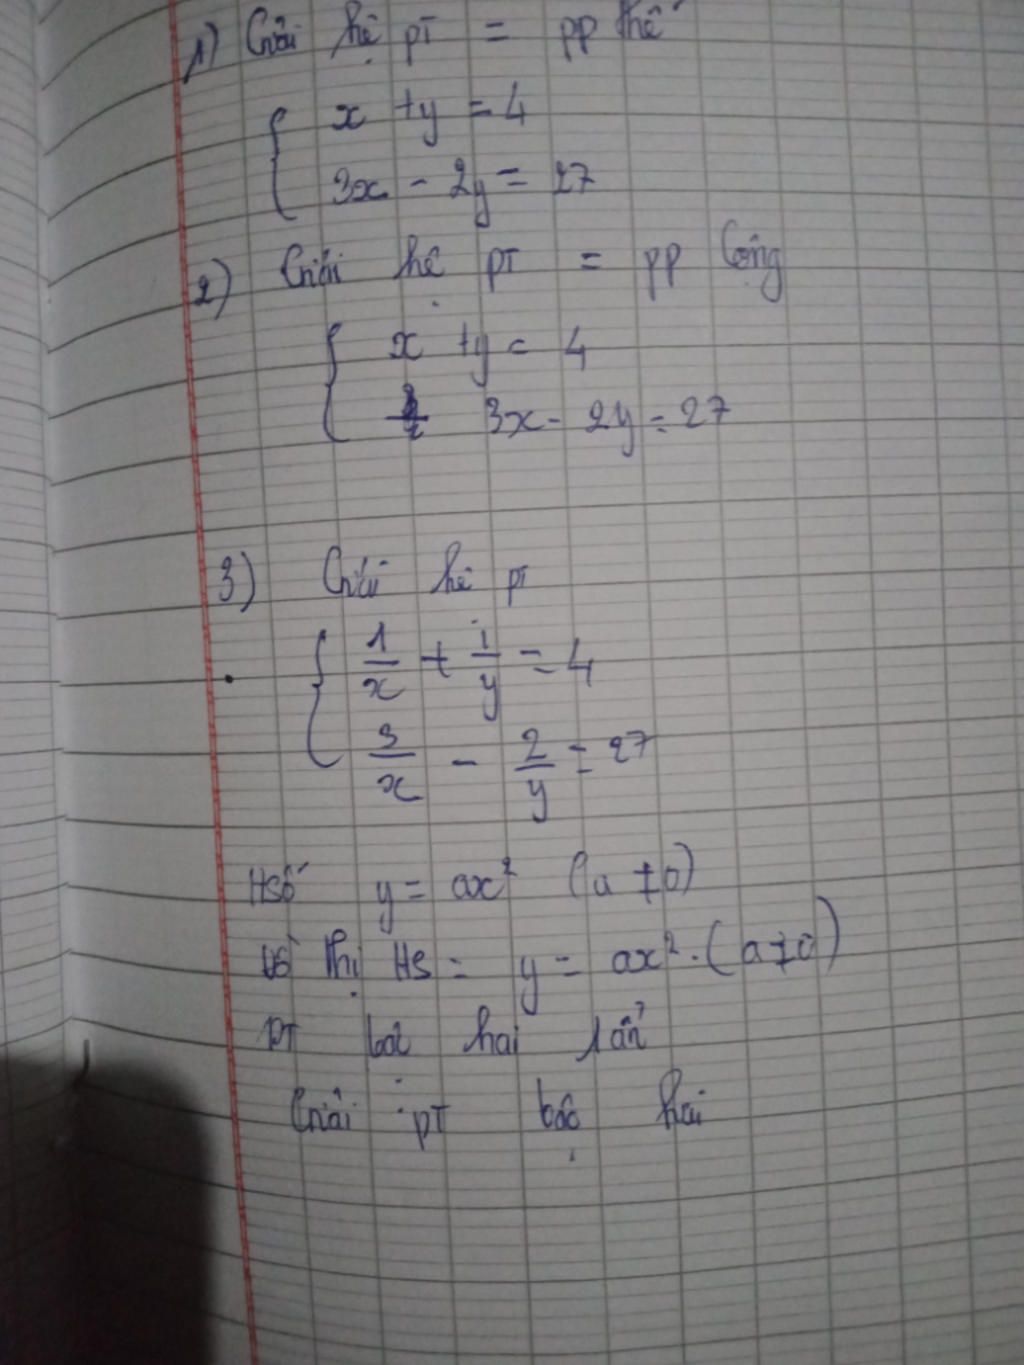 1) Giải hệ pt = pp thế
x + y = 4
3x - 2y = 27
2) Giải hệ pt = pp Cộng
x + y = 4
3x - 2y = 27
3) Giải hệ pt
1/x + 1/y = 4
3/x - 2/y = 27
Hsố y = ax² (a ≠ 0)
Đồ thị HS = y = ax². (a ≠ 0)
PT bậc hai 1 ẩn
Giải pt bậc hai